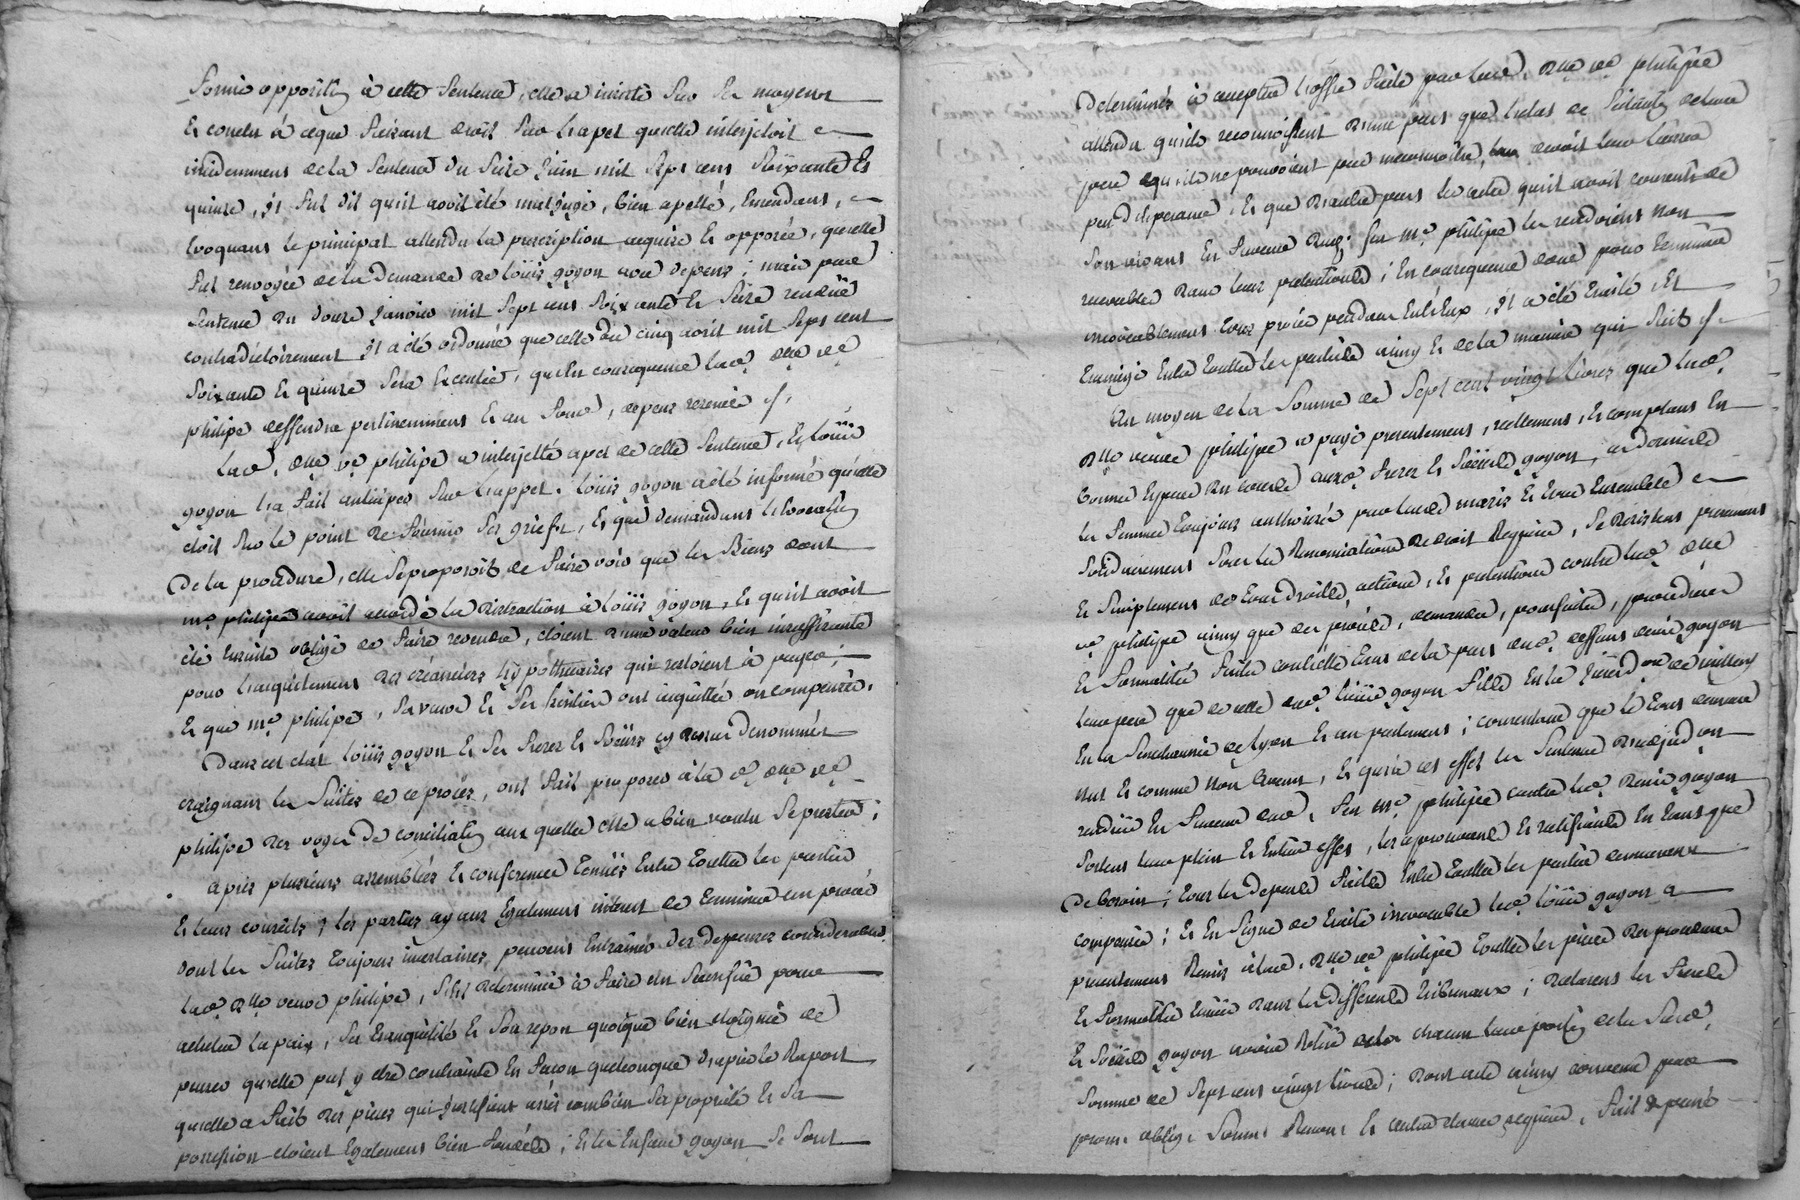 formé opposition à cette Sentence, elle a insisté sur ses moyens
Et conclu à ceque faisant droit sur l'apel qu'elle interjetoit
incidemment de la Sentence du Seize juin mil Sept cens Soixante Et
quinze, il fut dit qu'il avoit été mal jugé, bien apellé, Emendant,
Evoquant le principal attendu la prescription acquise Et opposée, qu'elle
fut renvoyée de la demande de Loüis goyon avec depens; mais par
Sentence du douze janvier mil Sept cens Soixante Et Seize rendüe
contradictoirement il a été ordonné que celle du cinq avril mil Sept cent
Soixante Et quinze Sera Executée, qu'En consequence lad. dlle ve
philipe deffendra pertinemment Et au fond, depens reservés
Lad. dlle ve philipe a interjetté apel de cette Sentence, Et Loüis
goyon l'a fait anticiper Sur l'appel. Loüis goyon a été informé qu'elle
étoit Sur le point de fournir Ses griefs, Et que demandant l'Evocation
De la procedure, elle Se proposoit de faire voir que les Biens dont
me philipe avoit accordé la distraction à Loüis goyon, Et qu'il avoit
été Ensuite obligé de faire revendre, étoient d'une valeur bien insuffisante
pour l'acquittement des créanciers hÿpothecaires qui restoient à payer;
Et que me philipe, Sa veuve Et Ses heritiers ont acquittés ou compensés.
Dans cet état Loüis goyon Et Ses freres Et Soeurs cy dessus denommés
craignant les Suites de ce procès, ont fait proposer à la d. dlle ve
philipe des voyes de conciliation aux quelles elle a bien voulu Se prester;
après plusieurs assemblées Et conferences tenües Entre toutes les parties
Et leurs conseils; les parties ayant Egalement interest de terminer un procès
dont les Suites toujours incertaines peuvent Entrainer des depenses considerables.
Lad. dlle veuve philipe, S'est determinée à faire un Sacrifice pour
acheter la paix, Sa tranquilité Et Son repos quoique bien eloignée de
penser qu'elle put y etre contrainte En façon quelconque d'après le Raport
qu'elle a fait des pieces qui justifient assés combien Sa propriété Et Sa
possession etoient Egalement bien fondées; Et les Enfans goyon Se Sont
Determinés à accepter l'offre faite par lad. dlle ve philipe
attendu qu'ils reconnoissent d'une part que l'etat de faillite de leur
pere qu'ils ne pouvoient pas meconnoitre, devoit leur laisser
peu d'esperance, Et que d'autre part les actes qu'il avoit consentis de
Son vivant En faveur dud. feu me philipe les rendoient non
recevables dans leurs pretentions; En consequence donc pour terminer
irrevocablement tous procès pendans Entr'Eux, il a été traité Et
transigé Entre toutes les parties ainsy Et de la maniere qui Suit
Au moyen de la Somme de Sept cent vingt livres que lad.
dlle veuve philipe a payé presentement, reellement, Et comptant En
bonnes Especes du cours auxd. freres Et Soeurs goyon, ces dernieres
les femmes toujours authorisées par leurs maris Et tous Ensemble
Solidairement Sous les Renonciations de droit Requises, Se desistent purement
Et Simplement de tous droits, actions, Et pretentions contre lad. dlle
ve philipe ainsy que des procès, demandes, poursuites, procedures
Et formalités faites contr'Elle tant de la part dud. deffunt denis goyon
leur pere que de celle dud. Loüis goyon fils Entre
En la Senechaussée de Lyon Et au parlement; consentant que le tout demeure
nul Et comme non avenu, Et qu'à cet effet les Sentences d'adjudon
rendües En faveur dud. feu me philipe contre led. denis goyon
Sortent leur plein Et Entier effet, les approuvant Et ratifiants En tant que
De besoin; tous les depens faits Entre toutes les parties demeurent
compensés; Et En Signe de traité irrevocable led. Loüis goyon a
presentement Remis à lad. dlle ve philipe toutes les pieces des procedures
Et formalités tenües dans les differents tribunaux; declarent les freres
Et Soeurs goyon avoir Retiré chacun leur portion de la Susd.
Somme de Sept cens vingt livres; dont acte ainsy convenu par
prom. oblig. Soum. Renon. Et autres clauses requises, fait & passé